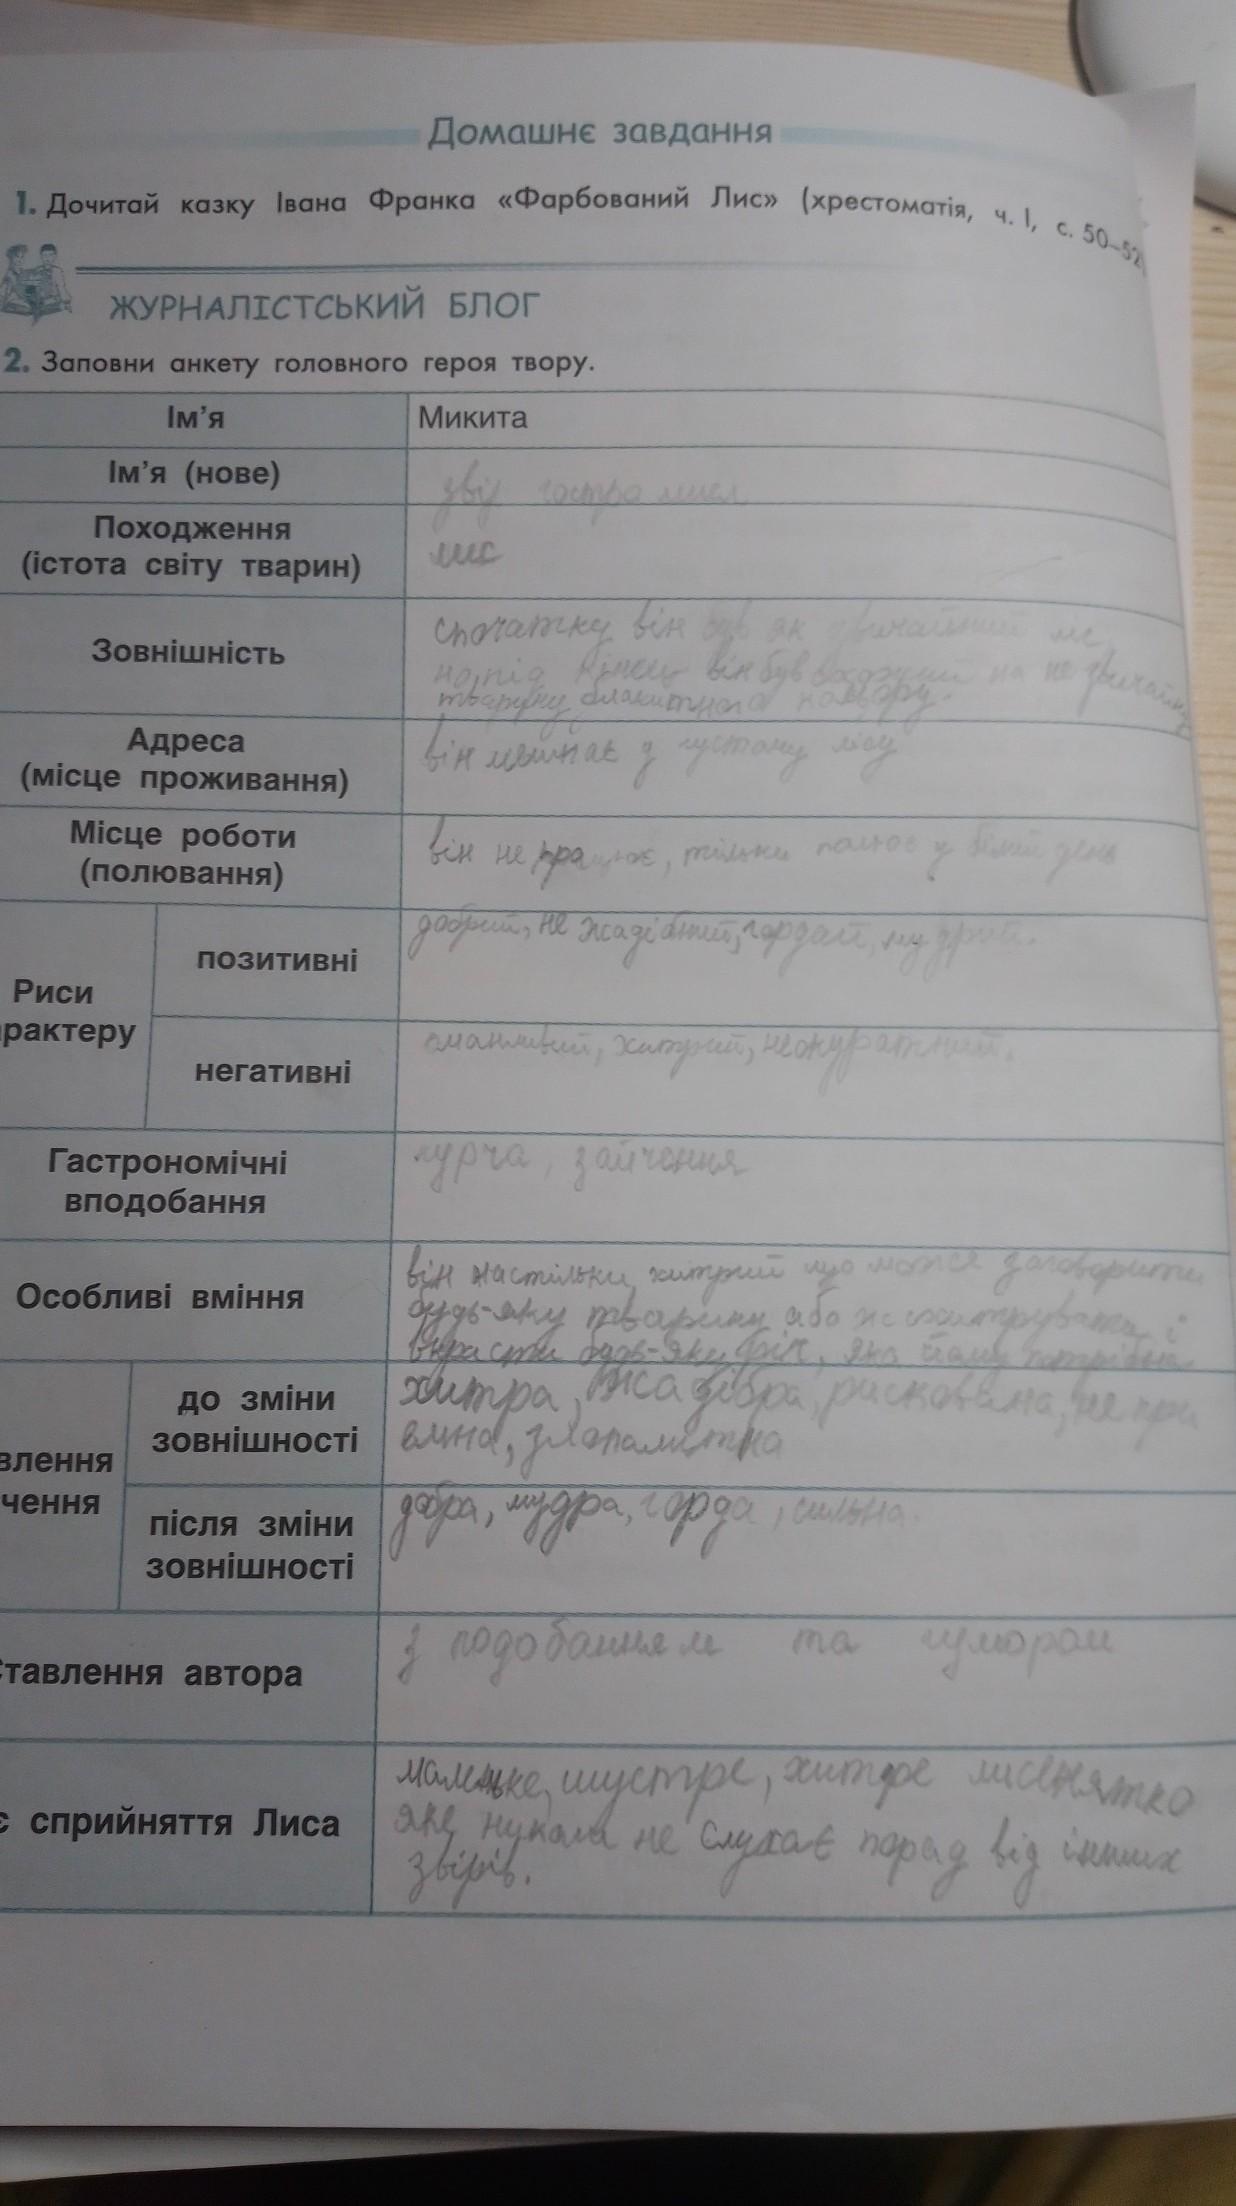 Домашнє завдання
1. Дочитай казку Івана Франка «Фарбований Лис» (хрестоматія, ч. І, с. 50–52
ЖУРНАЛІСТСЬКИЙ БЛОГ
2. Заповни анкету головного героя твору.
Ім'я
Микита
Ім'я (нове)
звір гостро
Походження
(істота світу тварин)
лис
Зовнішність
спочатку він був як звичайний лис
но під кінець він був схожий на не звичайну
тварину блакитного кольору.
Адреса
(місце проживання)
він мешкає у густому лісу
Місце роботи
(полювання)
він не працює, тільки полює у білий день
Риси
арактеру
позитивні
добрий, не жадібний, гордий, мудрий.
негативні
оманливий, хитрий, неокуратний.
Гастрономічні
вподобання
курча, зайченя
Особливі вміння
він настільки хитрий що може заговорити
будь-яку тварину або ж схитрувати і
вкрасти будь-яку річ, яка йому потрібна
влення
чення
до зміни
зовнішності
хитра, жадібра, рискована, не при
ємна, злопамятна
після зміни
зовнішності
добра, мудра, горда, сильна.
Ставлення автора
з подобанням та гумором
є сприйняття Лиса
маленьке, шустре, хитре лисенятко
яке нуколи не слухає порад від інших
звірів.